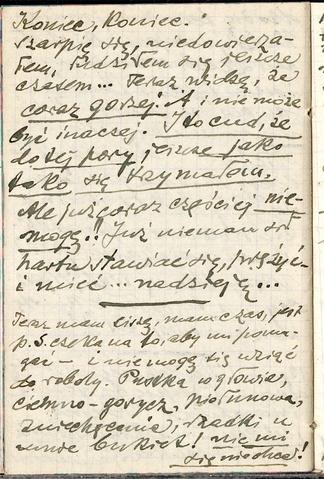 Koniec, Koniec.
Szarpię się, niedowierza-
łem, łudziłem się jeszcze
czasem... Teraz widzę, że
coraz gorzej. A i nie może
być inaczej. I to cud, że
do tej pory jeszcze jako
tako się trzymałem.
Ale już coraz częściej nie-
mogę!! Już nie mam
hartu stawiać się, prężyć
i mieć... nadzieję...
Teraz mam ciszę, mam czas, jest
p. S. czeka na to, aby mi poma-
gać – i nie mogę się wziąć
do roboty. Pustka w głowie,
ciemno-gorycz, piołunowa,
zniechęcenie, rzadki u
mnie bukiet! nie mi
się nie chce!